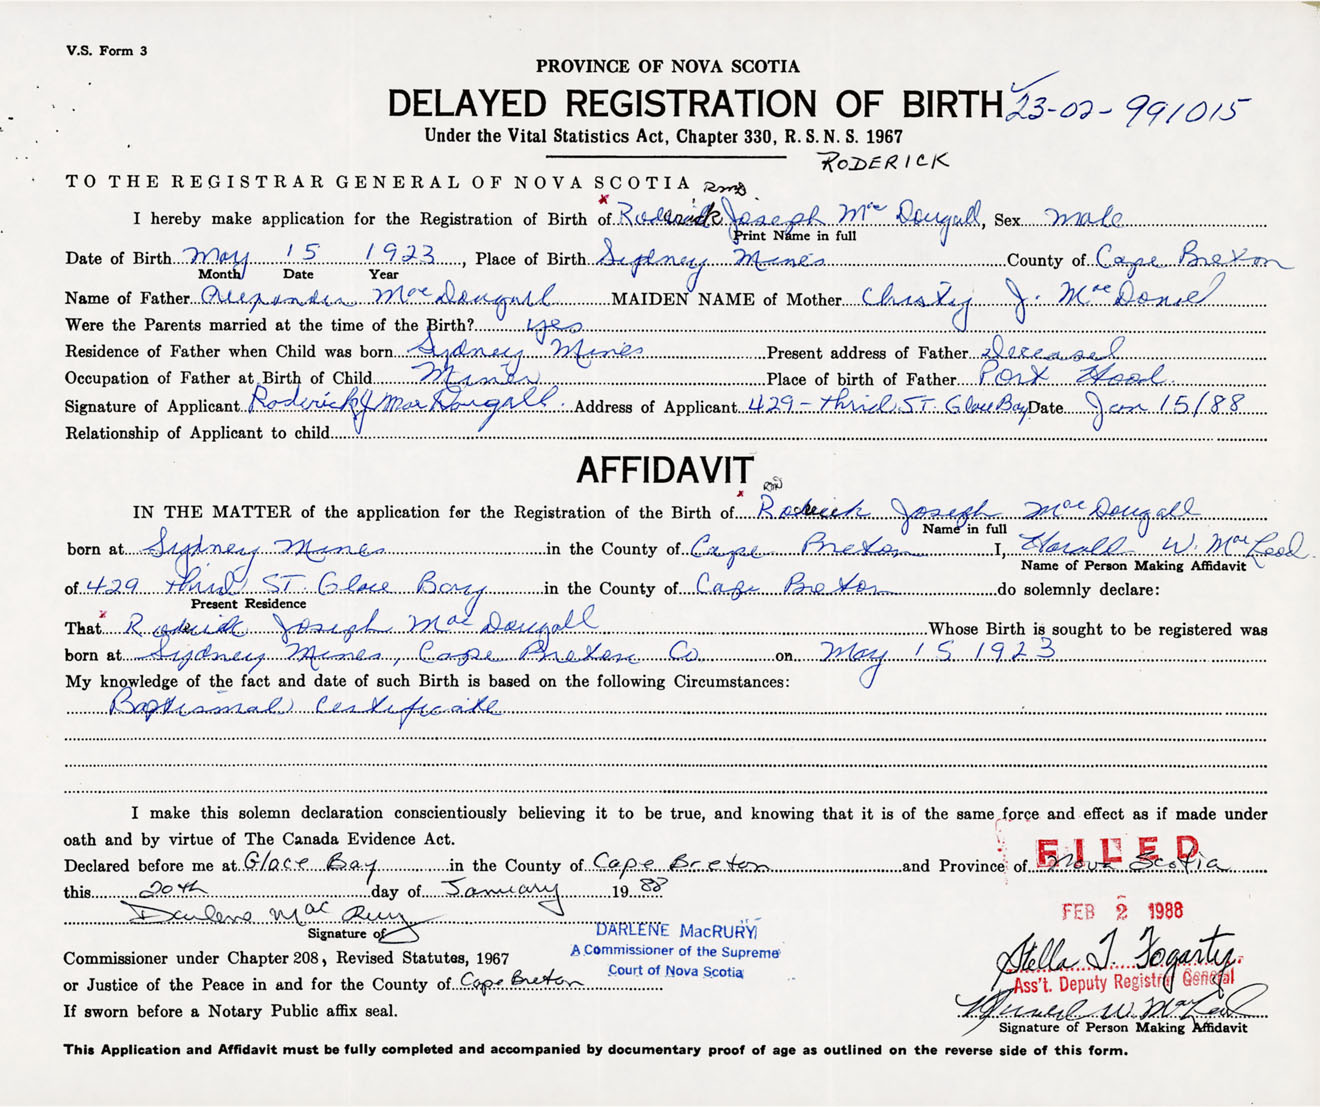 V.S. Form 3
PROVINCE OF NOVA SCOTIA
DELAYED REGISTRATION OF BIRTH 23-02-991015
Under the Vital Statistics Act, Chapter 330, R.S.N.S. 1967
RODERICK
TO THE REGISTRAR GENERAL OF NOVA SCOTIA
I hereby make application for the Registration of Birth of Roderick Joseph MacDougall, Sex male
Print Name in full
Date of Birth May 15 1923, Place of Birth Sydney Mines County of Cape Breton
Month Date Year
Name of Father Alexander MacDougall MAIDEN NAME of Mother Christy J. MacDonel
Were the Parents married at the time of the Birth? yes
Residence of Father when Child was born Sydney Mines Present address of Father Deceased
Occupation of Father at Birth of Child Miner Place of birth of Father Port Hood
Signature of Applicant Roderick J MacDougall Address of Applicant 429-thrid ST. Glace Bay Date Jan 15/88
Relationship of Applicant to child
AFFIDAVIT
IN THE MATTER of the application for the Registration of the Birth of Roderick Joseph MacDougall
Name in full
born at Sydney Mines in the County of Cape Breton I, Harold W. MacLeod
Name of Person Making Affidavit
of 429 thrid ST. Glace Bay in the County of Cape Breton do solemnly declare:
Present Residence
That Roderick Joseph MacDougall Whose Birth is sought to be registered was
born at Sydney Mines, Cape Breton Co on May 15 1923
My knowledge of the fact and date of such Birth is based on the following Circumstances:
Baptismal Certificate
I make this solemn declaration conscientiously believing it to be true, and knowing that it is of the same force and effect as if made under
oath and by virtue of The Canada Evidence Act.
Declared before me at Glace Bay in the County of Cape Breton and Province of Nova Scotia
FILED
this 20th day of January 1988
FEB 2 1988
Darlene MacRury
Signature of
DARLENE MacRURY
A Commissioner of the Supreme
Court of Nova Scotia
Stella T. Fogarty
Ass't. Deputy Registrar General
Commissioner under Chapter 208, Revised Statutes, 1967
or Justice of the Peace in and for the County of Cape Breton
Harold W. MacLeod
Signature of Person Making Affidavit
If sworn before a Notary Public affix seal.
This Application and Affidavit must be fully completed and accompanied by documentary proof of age as outlined on the reverse side of this form.